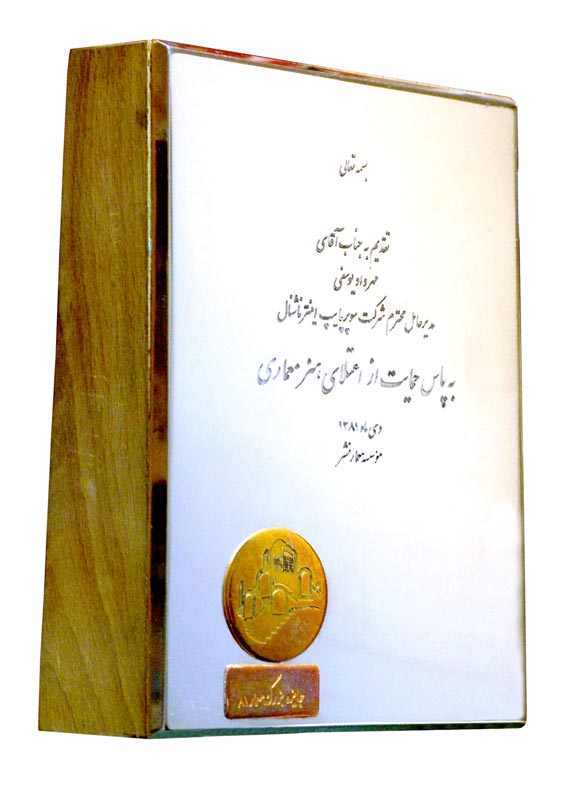 بسمه تعالی
تقدیم به جناب آقای
مهرداد یوسفی
مدیرعامل محترم شرکت سوپرپایپ اینترناشنال
به پاس حمایت از اعتلای هنر معماری
دی ماه ۱۳۸۱
موسسه معمار نشر
جایزه بزرگ معمار ۸۱